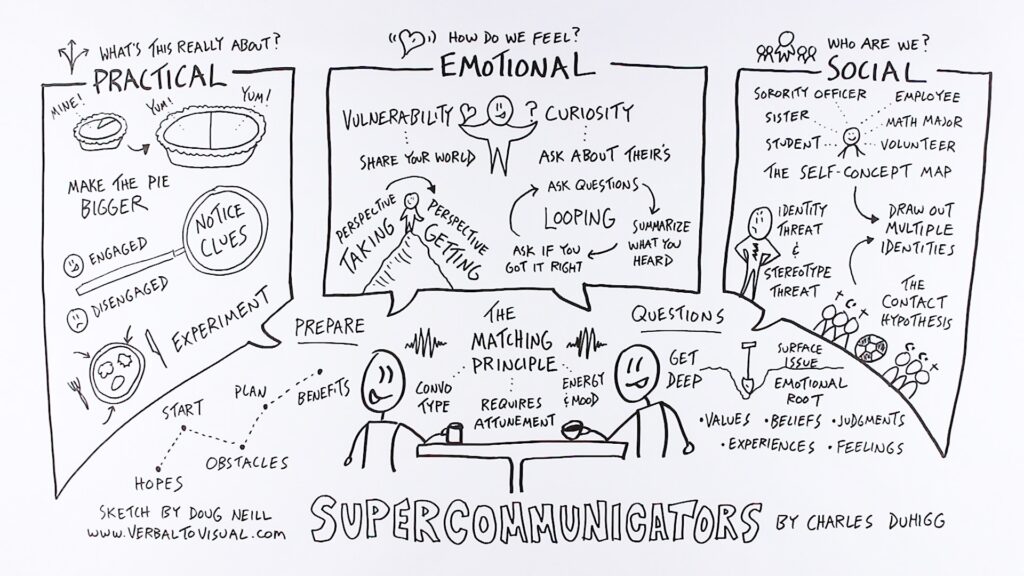 WHAT'S THIS REALLY ABOUT?
PRACTICAL
MINE!
YUM!
YUM!
MAKE THE PIE
BIGGER
NOTICE
CLUES
ENGAGED
DISENGAGED
EXPERIMENT
HOW DO WE FEEL?
EMOTIONAL
VULNERABILITY
? CURIOSITY
SHARE YOUR WORLD
ASK ABOUT THEIR'S
PERSPECTIVE
TAKING
PERSPECTIVE
GETTING
ASK QUESTIONS
LOOPING
SUMMARIZE
WHAT YOU
HEARD
ASK IF YOU
GOT IT RIGHT
WHO ARE WE?
SOCIAL
SORORITY OFFICER
EMPLOYEE
SISTER
MATH MAJOR
STUDENT
VOLUNTEER
THE SELF-CONCEPT MAP
IDENTITY
THREAT
&
STEREOTYPE
THREAT
DRAW OUT
MULTIPLE
IDENTITIES
THE
CONTACT
HYPOTHESIS
PREPARE
START
PLAN
BENEFITS
OBSTACLES
HOPES
THE
MATCHING
PRINCIPLE
CONVO
TYPE
REQUIRES
ATTUNEMENT
ENERGY
& MOOD
QUESTIONS
GET
DEEP
SURFACE
ISSUE
EMOTIONAL
ROOT
•VALUES •BELIEFS •JUDGMENTS
•EXPERIENCES •FEELINGS
SKETCH BY DOUG NEILL
WWW.VERBALTOVISUAL.COM
SUPERCOMMUNICATORS
BY CHARLES DUHIGG